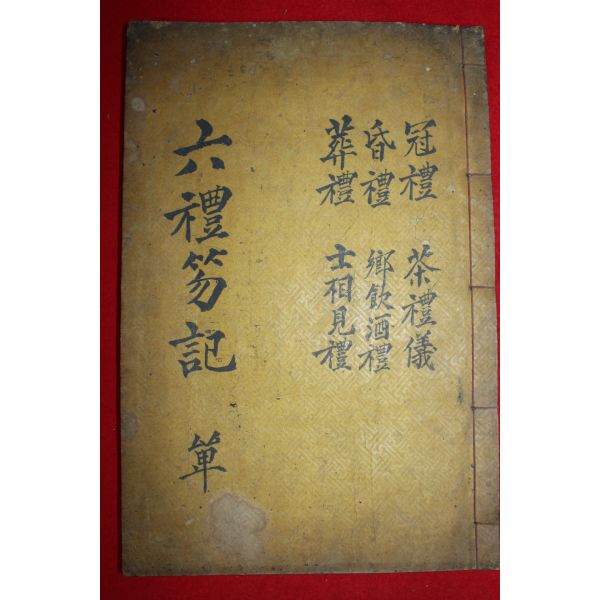 冠禮 茶禮儀
昏禮 鄉飲酒禮
葬禮 士相見禮
六禮笏記 単